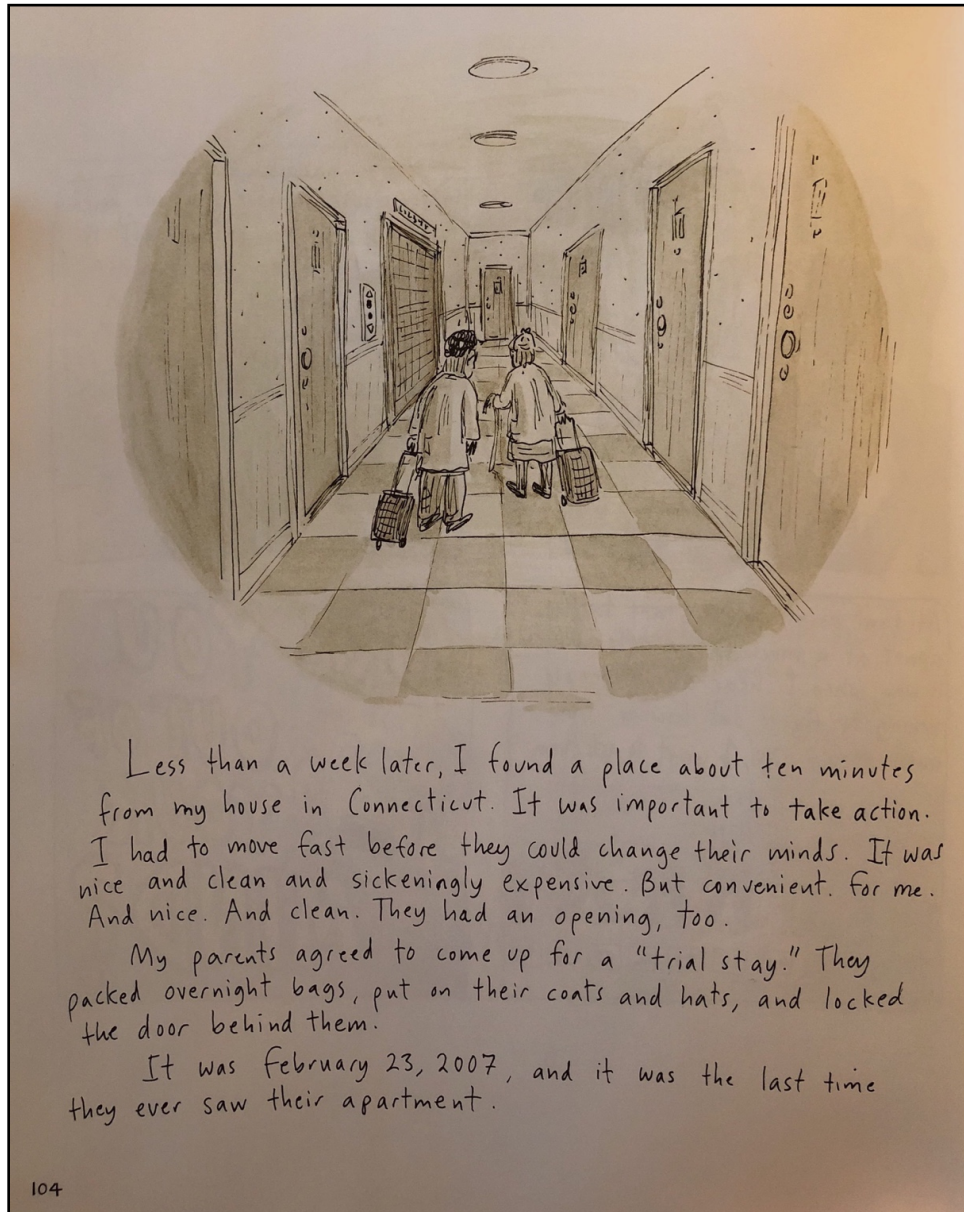 Less than a week later, I found a place about ten minutes
from my house in Connecticut. It was important to take action.
I had to move fast before they could change their minds. It was
nice and clean and sickeningly expensive. But convenient. For me.
And nice. And clean. They had an opening, too.
My parents agreed to come up for a "trial stay." They
packed overnight bags, put on their coats and hats, and locked
the door behind them.
It was February 23, 2007, and it was the last time
they ever saw their apartment.
104